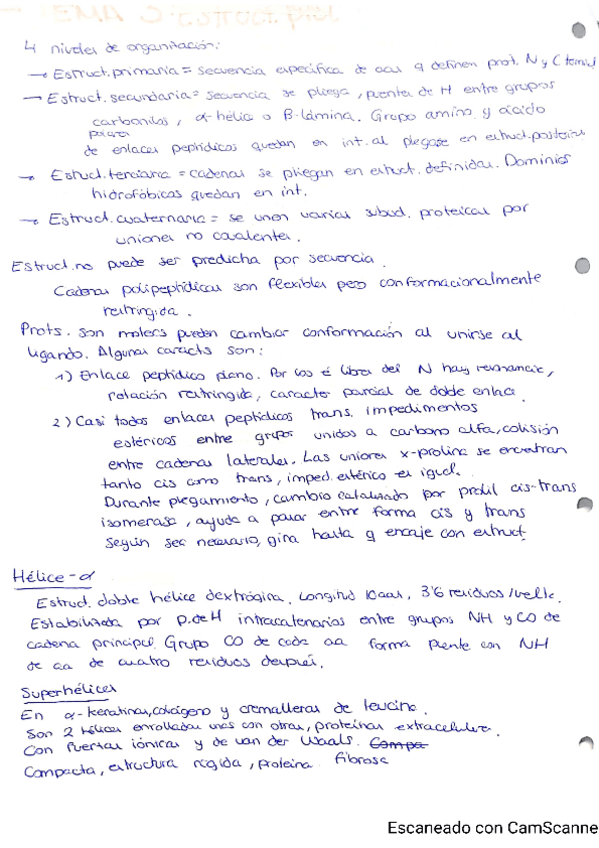 TEMA 3: Estruct. prot
4 niveles de organización:
→ Estruct. primaria = secuencia específica de aas q definen prot. N y C terminal
→ Estruct. secundaria = secuencia se pliega, puentes de H entre grupos
carbonilos, α-hélice o β-lámina. Grupo amino y ácido
polares
de enlaces peptídicos quedan en int. al plegarse en estruct. posteriores
→ Estruct. terciaria = cadenas se pliegan en estruct. definidas. Dominios
hidrofóbicos quedan en int.
→ Estruct. cuaternaria = se unen varias subud. proteicas por
uniones no covalentes.
Estruct. no puede ser predicha por secuencia.
Cadenas polipeptídicas son flexibles pero conformacionalmente
restringida.
Prots. son moléculas pueden cambiar conformación al unirse al
ligando. Algunas caracts son:
1) Enlace peptídico plano. Por los é libres del N hay resonancia,
rotación restringida, caracter parcial de doble enlace.
2) Casi todos enlaces peptídicos trans. impedimentos
estéricos entre grupos unidos a carbono alfa, colisión
entre cadenas laterales. Las uniones x-prolina se encuentran
tanto cis como trans, imped. estérico es igual.
Durante plegamiento, cambio catalizado por prolil cis-trans
isomerasa, ayuda a pasar entre forma cis y trans
según sea necesario, gira hasta q encaje con estruct.
Hélice-α
Estruct. doble hélice dextrógira. Longitud 10 aas, 3'6 residuos/vuelta.
Estabilizada por p. de H intracatenarios entre grupos NH y CO de
cadena principal. Grupo CO de cada aa forma puente con NH
de aa de cuatro residuos después.
Superhélices
En α-keratinas, colágeno y cremalleras de leucina.
Son 2 hélices enrolladas unas con otras, proteínas extracelulares.
Con fuerzas iónicas y de van der Waals. Compa
Compacta, estructura rígida, proteína fibrosa
Escaneado con CamScanne